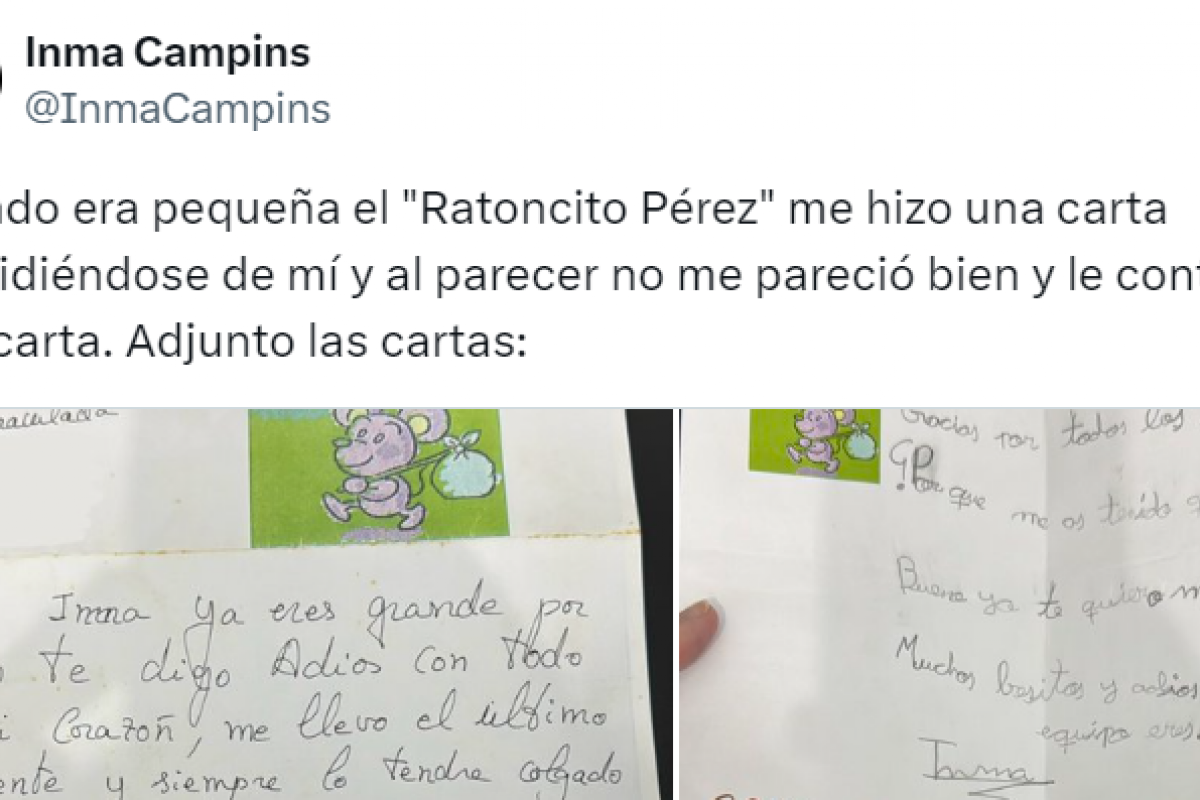 Inma Campins
@InmaCampins
do era pequeña el "Ratoncito Pérez" me hizo una carta
idiéndose de mí y al parecer no me pareció bien y le con
carta. Adjunto las cartas:
aculada
Inma ya eres grande por
te digo Adios con todo
i Corazoñ, me llevo el último
ente y siempre lo tendre colgado
Gracias por todos los
¿Por que me os tenido
Bueno ya te quiero m
Muchos besitos y adios
equipo eres.
Inma